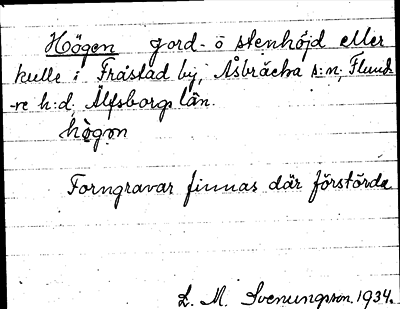 Högen jord- o stenhöjd eller
kulle i Fråstad by, Åsbräcka s:n, Flund-
re h:d, Älfsborgs län.
hògon
Forngravar finnas där förstörda
L. M. Svenungsson. 1934.